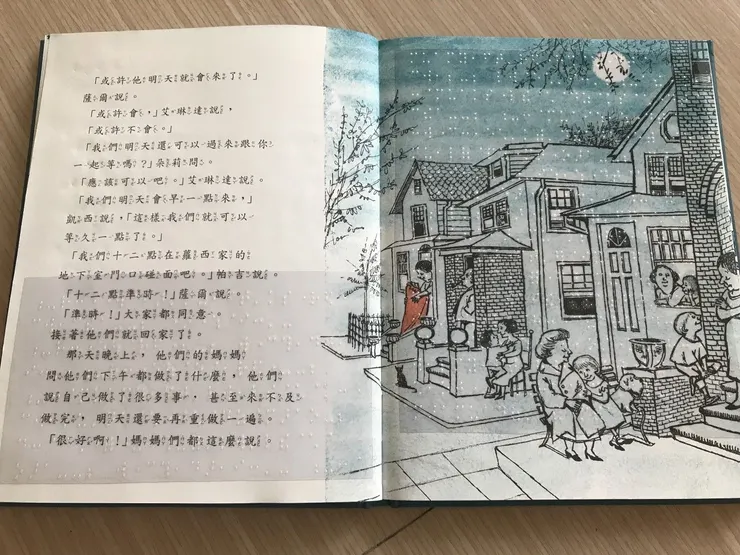 「或許他明天就會來了。」
薩爾說。
「或許會，」艾琳達說，
「或許不會。」
「我們明天還可以過來跟你
一起等嗎？」朵莉問。
「應該可以吧。」艾琳達說。
「我們明天會早一點來，」
凱西說，「這樣我們就可以
等久一點了。」
「我們十二點在蘿西家的
地下室門口碰面吧。」帕吉說。
「十二點準時！」薩爾說。
「準時！」大家都同意。
接著他們就回家了。
那天晚上，他們的媽媽
問他們下午都做了什麼，他們
說自己做了很多事，甚至來不及
做完，明天還要再重做一遍。
「很好啊！」媽媽們都這麼說。